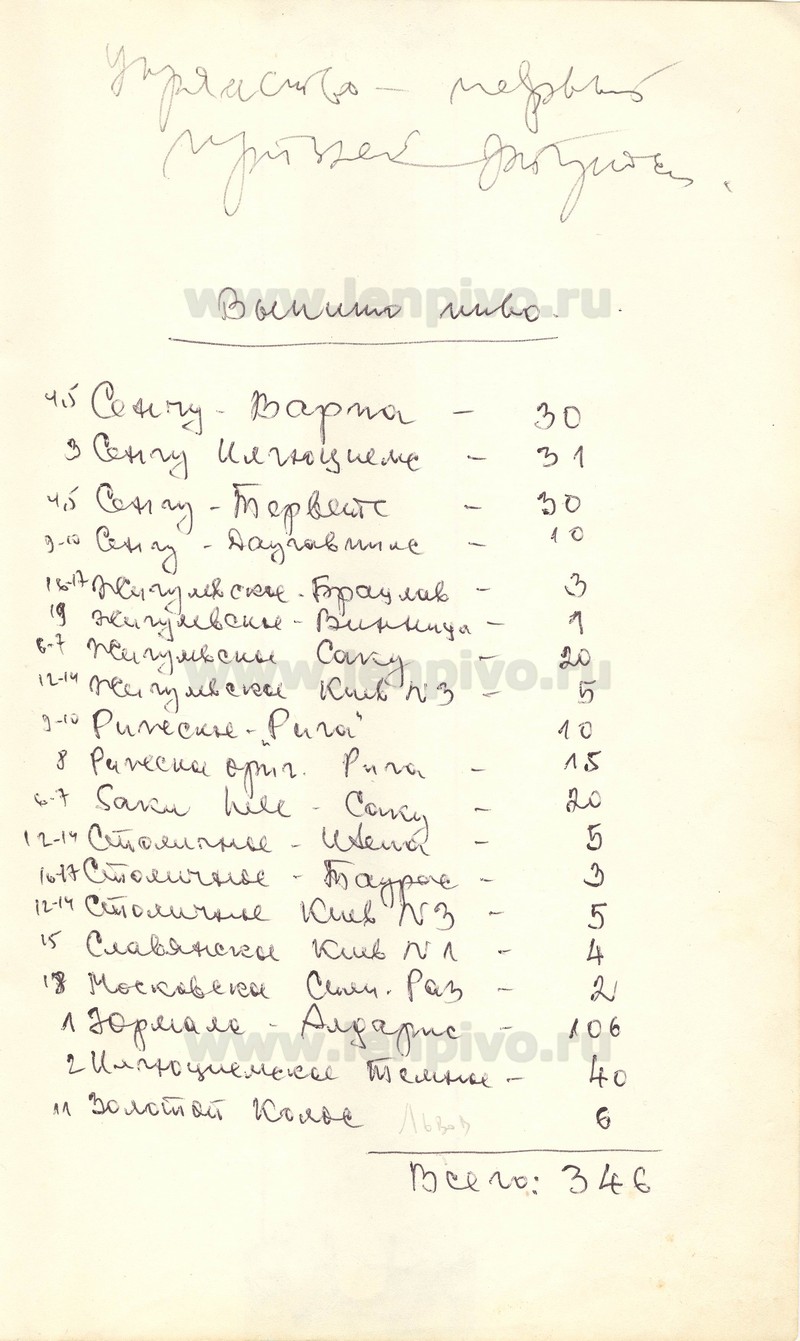 Упрямство – первый
признак тупости.
Выпито пиво.
4,5 Сенчу - Варпа – 30
3 Сенчу Ильгюциемс – 31
4,5 Сенчу - Терветс – 30
9-10 Сенчу - Даугавпилс – 10
16-17 Жигулевское - Брацлав – 3
19 Жигулевское - Винница – 1
6-7 Жигулевское Саку – 20
12-14 Жигулевское Киев N3 – 5
9-10 Рижское - "Рига" 10
8 Рижское ориг. Рига – 15
6-7 Saku hele - Саку – 20
12-14 Столичное - – 5
16-17 Столичное - Таурас – 3
12-14 Столичное Киев N3 – 5
15 Славянское Киев N1 – 4
18 Московское Раз – 2
1 Юрмала - Алдарис – 106
2 Ильгюциемское Темное – 40
11 Золотой Колос Львов 6
Всего: 346
www.lenpivo.ru
www.lenpivo.ru
www.lenpivo.ru